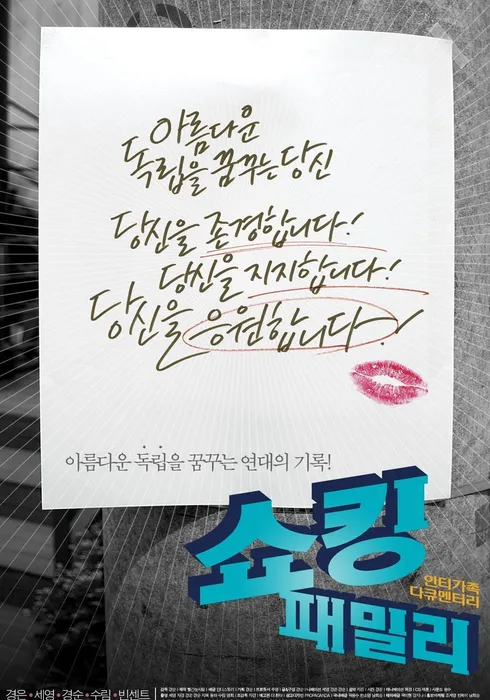 아름다운
독립을 꿈꾸는 당신
당신을 존경합니다!
당신을 지지합니다!
당신을 응원합니다!
아름다운 독립을 꿈꾸는 연대의 기록!
쇼킹
안티가족
다큐멘터리
패밀리
경은 • 세영 • 경수 • 수림 • 빈센트